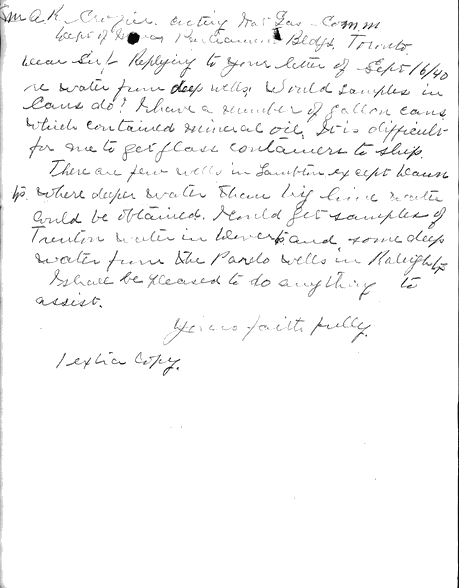 A.R. Crozier. acting Nat Gas - Comm
Dept of Mines Parliament Bldgs, Toronto.
Dear Sir. Replying to your letter of Sept 16/40
re water from deep wells. Would samples in
Cans do? I have a number of gallon cans
which contained mineral oil. It is difficult
for me to get glass containers to ship.
There are few wells in Lambton except
where deeper water than big lime water
could be obtained. I could get samples of
Trenton water in Dover tp and some deep
water from the Pardo wells in Raleigh tp
I shall be pleased to do anything to
assist.
Yours faithfully.
1 extra copy.